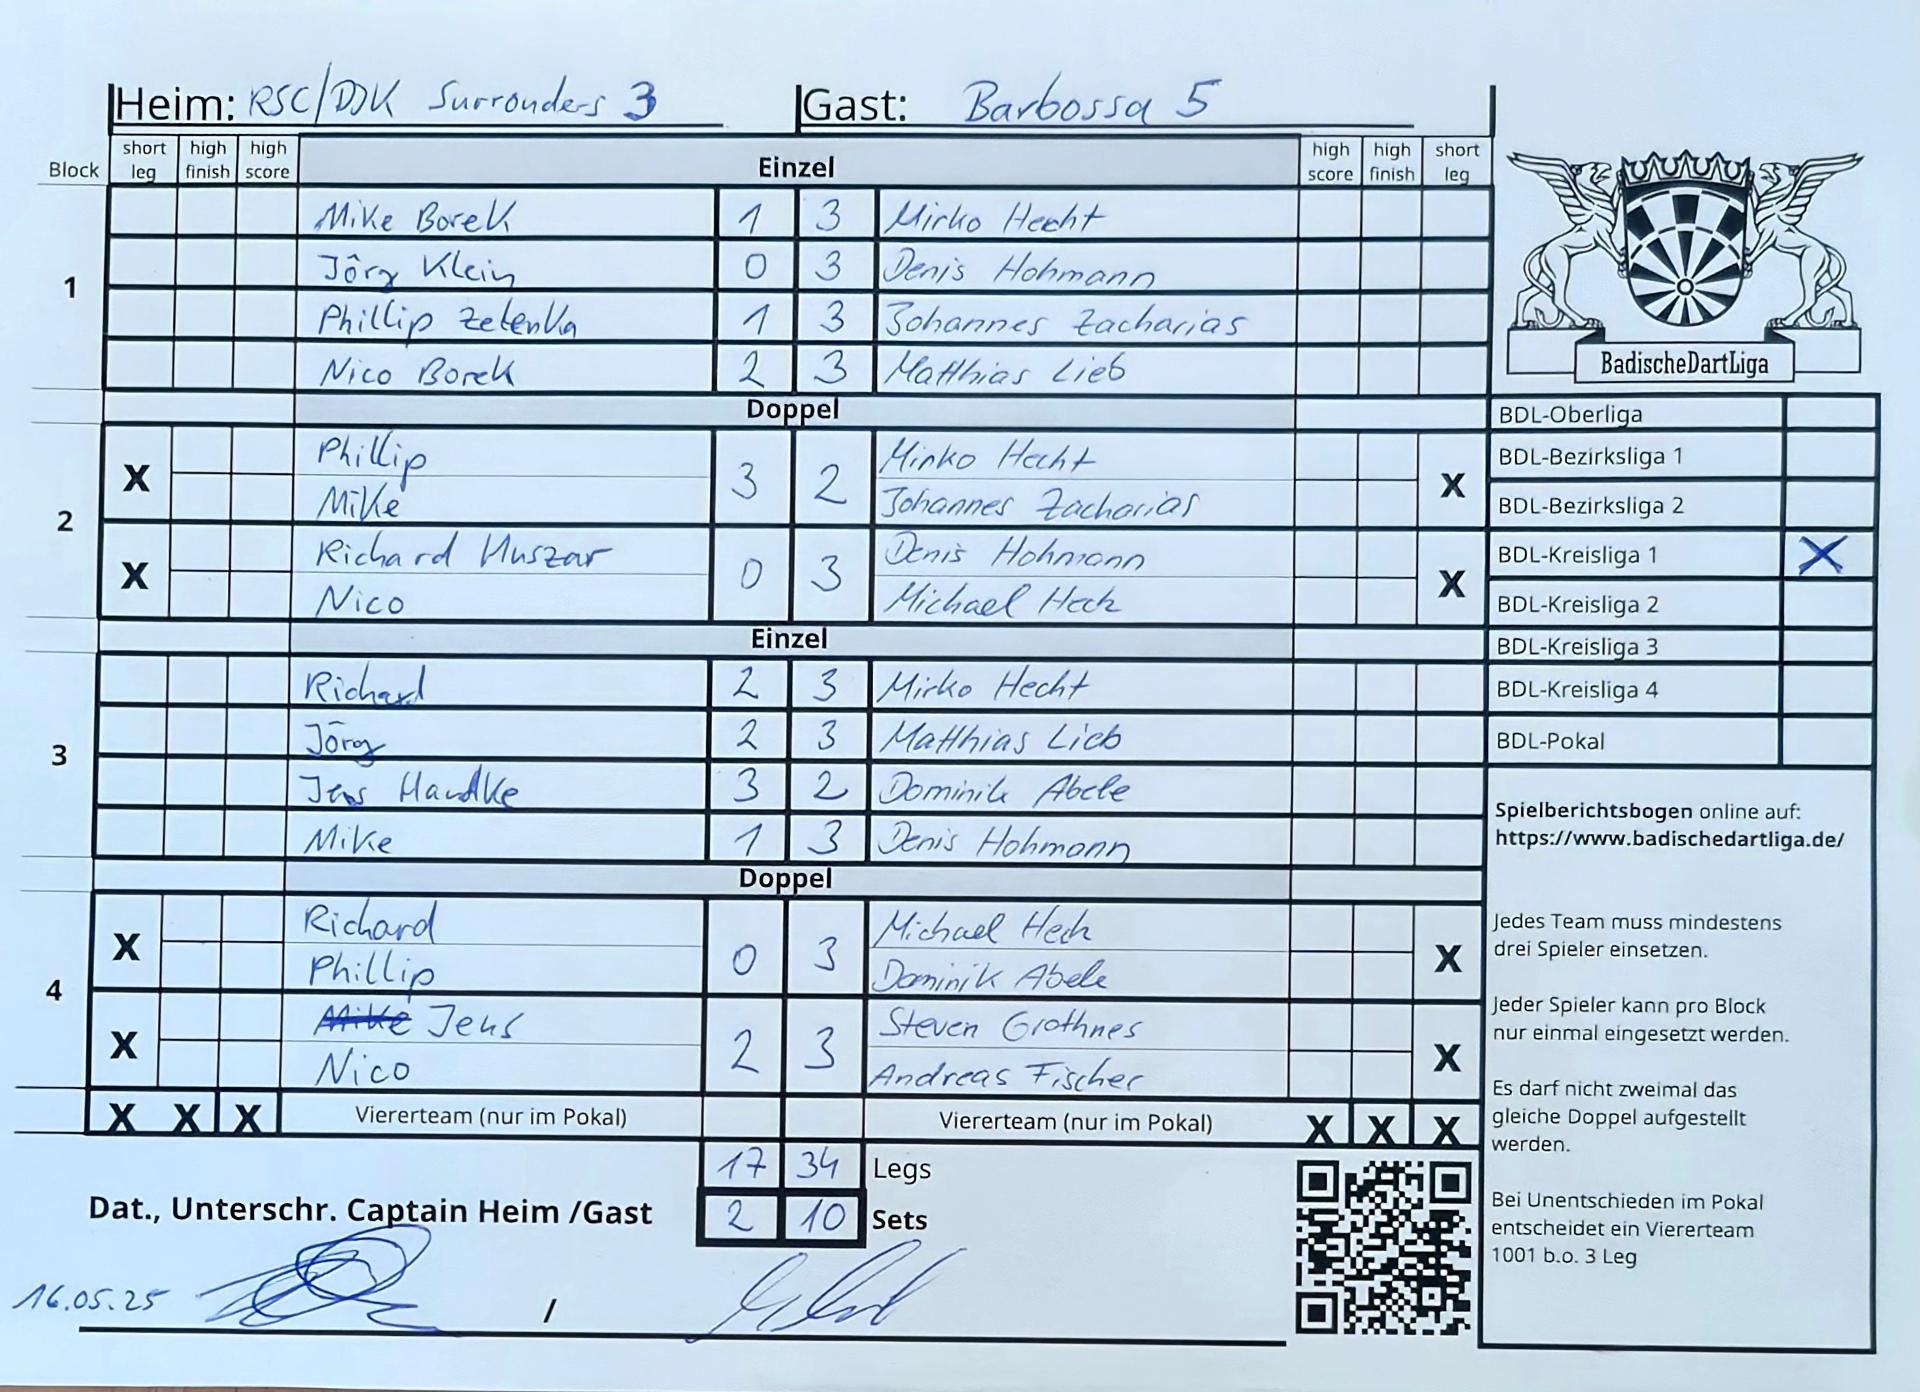 Heim: RSC/DJK Surrounders 3 Gast: Barbossa 5
Block short leg high finish high score Einzel high score high finish short leg
1
Mike Borek 1 3 Mirko Hecht
Jörg Klein 0 3 Denis Hohmann
Phillip Zelenka 1 3 Johannes Zacharias
Nico Borek 2 3 Matthias Lieb
Doppel
2
X Phillip 3 2 Mirko Hecht X
Mike Johannes Zacharias
X Richard Huszar 0 3 Denis Hohmann X
Nico Michael Heck
Einzel
3
Richard 2 3 Mirko Hecht
Jörg 2 3 Matthias Lieb
Jens Handke 3 2 Dominik Abele
Mike 1 3 Denis Hohmann
Doppel
4
X Richard 0 3 Michael Heck X
Phillip Dominik Abele
X Mike Jens 2 3 Steven Grothnes X
Nico Andreas Fischer
X X X Viererteam (nur im Pokal) Viererteam (nur im Pokal) X X X
17 34 Legs
Dat., Unterschr. Captain Heim /Gast 2 10 Sets
16.05.25 /
BadischeDartLiga
BDL-Oberliga
BDL-Bezirksliga 1
BDL-Bezirksliga 2
BDL-Kreisliga 1 X
BDL-Kreisliga 2
BDL-Kreisliga 3
BDL-Kreisliga 4
BDL-Pokal
Spielberichtsbogen online auf:
https://www.badischedartliga.de/
Jedes Team muss mindestens
drei Spieler einsetzen.
Jeder Spieler kann pro Block
nur einmal eingesetzt werden.
Es darf nicht zweimal das
gleiche Doppel aufgestellt
werden.
Bei Unentschieden im Pokal
entscheidet ein Viererteam
1001 b.o. 3 Leg